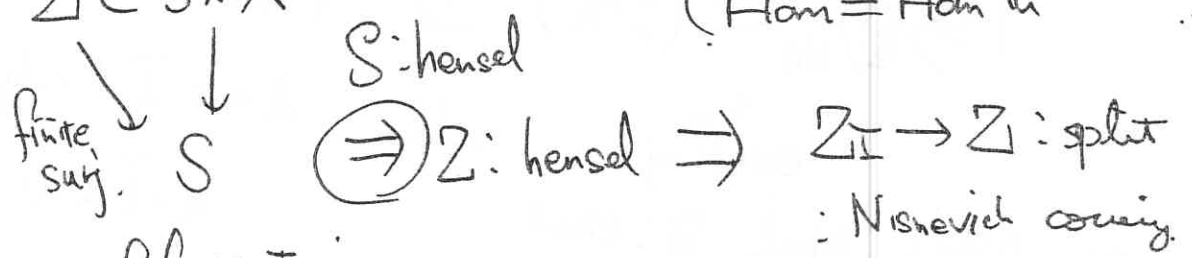 (Hom = Hom in
S: hensel
finite surj. S ⇒ Z: hensel ⇒ Z_I → Z : split
: Nisnevich covering.